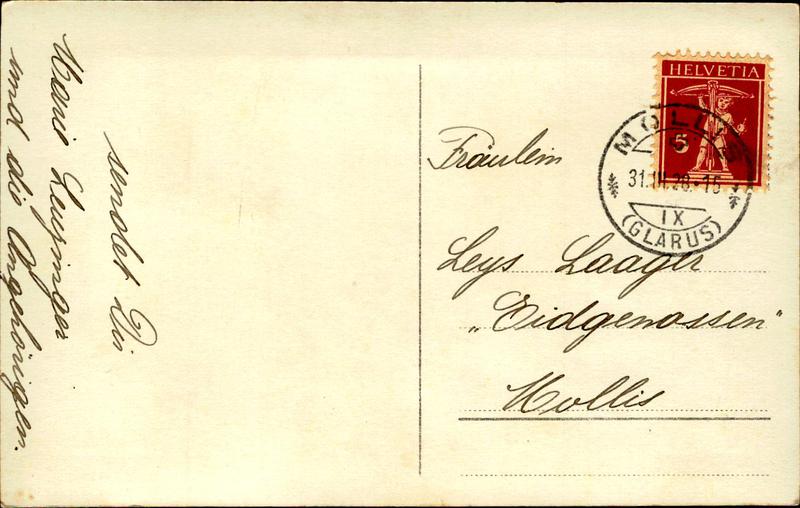 sendet Dir
Marie Leuzinger
und die Angehörigen.
HELVETIA
5
MOLLIS
31.III.28.-15
IX
(GLARUS)
Fräulein
Leys Laager
„Eidgenossen"
Mollis